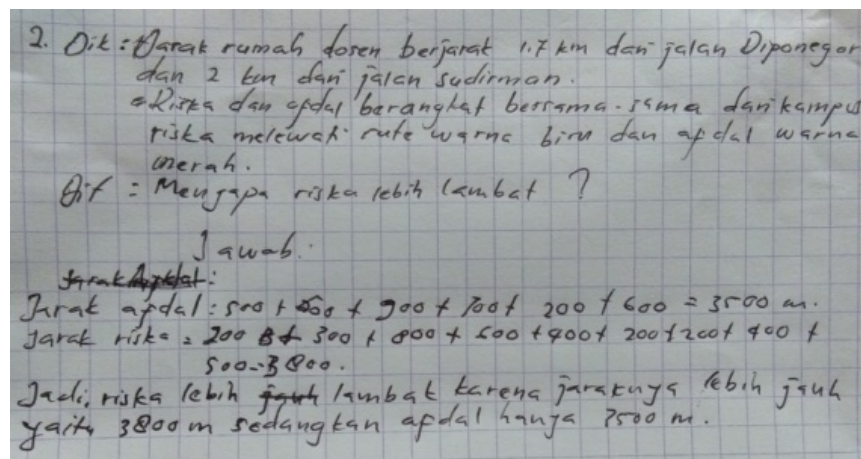 2. Dik : Jarak rumah dosen berjarak 1.7 km dari jalan Diponegor
dan 2 km dari jalan sudirman.
= Riska dan afdal berangkat bersama-sama dari kampus
riska melewati rute warna biru dan afdal warna
merah.
Dit : Mengapa riska lebih lambat ?
Jawab :
Jarak Afdal :
Jarak afdal : 500 + 600 + 900 + 700 + 200 + 600 = 3500 m.
Jarak riska = 200 + 300 + 800 + 600 + 400 + 200 + 200 + 400 +
500 = 3800.
Jadi, riska lebih jauh lambat karena jaraknya lebih jauh
yaitu 3800 m sedangkan afdal hanya 3500 m.